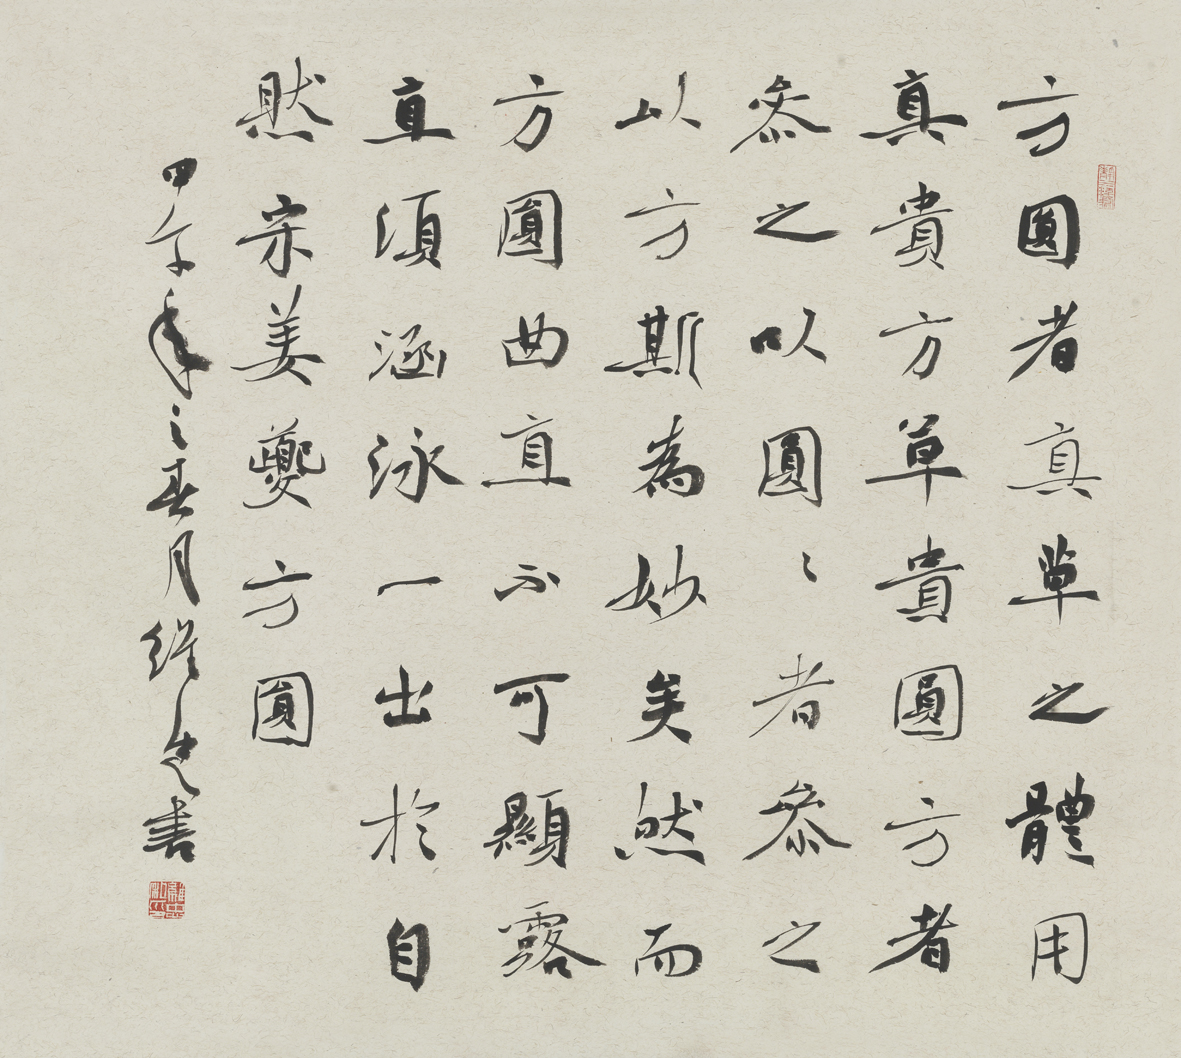 方圓者真草之體用
真貴方草貴圓方者
參之以圓圓者參之
以方斯為妙矣然而
方圓曲直不可顯露
直須涵泳一出於自
然宋姜夔方圓
甲午年之春月維忠書